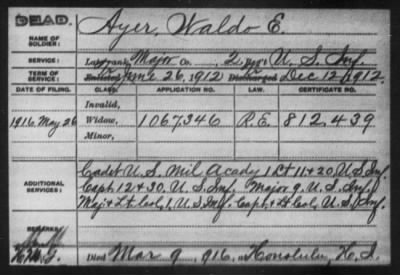 DEAD.
NAME OF SOLDIER: Ayer, Waldo E.
SERVICE: Major Co. 2 Reg't U. S. Inf.
TERM OF SERVICE: Enlisted June 26, 1912 Discharged Dec 12, 1912.
DATE OF FILING. CLASS. APPLICATION NO. LAW. CERTIFICATE NO.
Invalid,
1916 May 26 Widow, 1067346 R.E. 812,439
Minor,
Cadet U. S. Mil Acady 1 Lt 11 + 20 U S Inf.
ADDITIONAL SERVICES: Capt. 12 + 30. U. S. Inf. Major 9. U. S. Inf.
Maj + Lt Col, 1. U S Inf. Capt, + Lt Col, U. S. Inf.
REMARKS:
Died Mar 9 916. Honolulu, H. I.